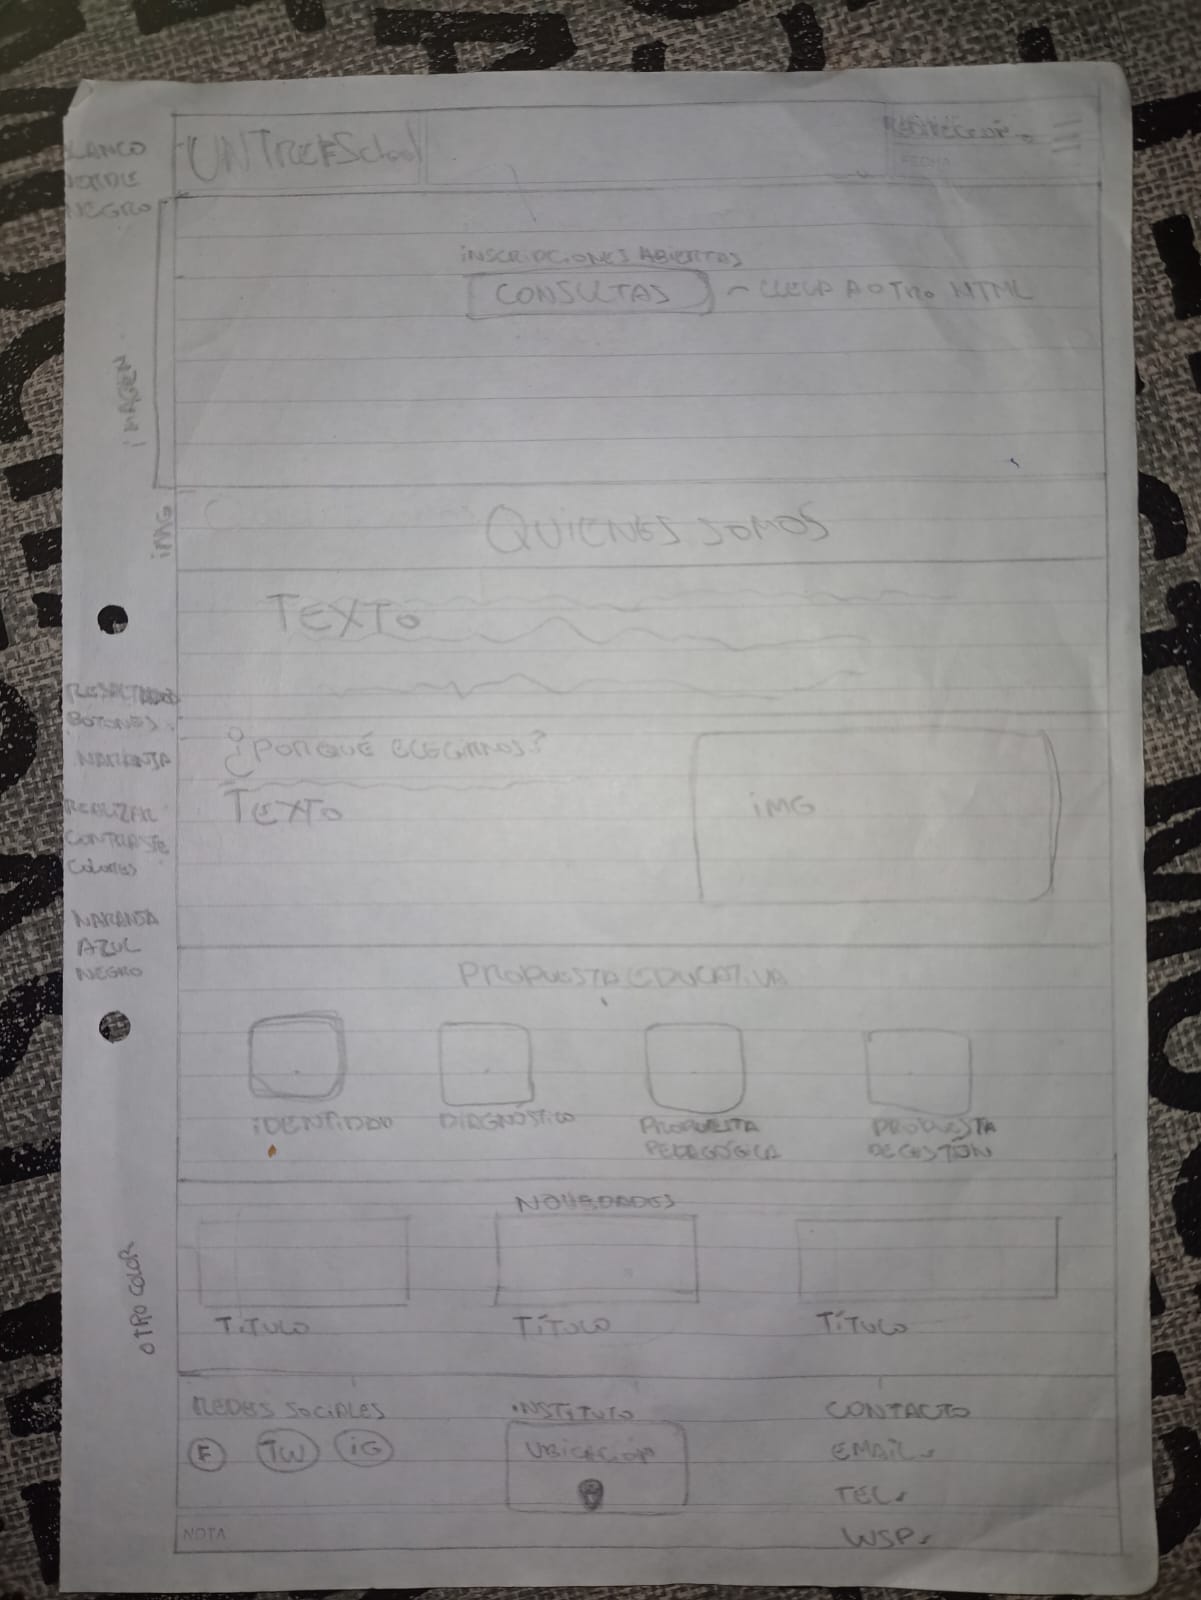 BLANCO
BORDE
NEGRO
UNTREFSchool
FECHA
INSCRIPCIONES ABIERTAS
CONSULTAS
LLEVA A OTRO HTML
IMAGEN
IMG
QUIENES SOMOS
TEXTO
RESALTADOS
BOTONES
NARANJA
REALIZAR
CONTRASTE
Colores
NARANJA
AZUL
NEGRO
¿PORQUÉ ELEGIRNOS?
TEXTO
IMG
PROPUESTA EDUCATIVA
IDENTIDAD
DIAGNÓSTICO
PROPUESTA
PEDAGÓGICA
PROPUESTA
DE GESTIÓN
OTRO COLOR
NOVEDADES
TITULO
TÍTULO
TÍTULO
REDES SOCIALES
F
TW
IG
INSTITUTO
UBICACIÓN
CONTACTO
EMAIL
TEL
WSP
NOTA